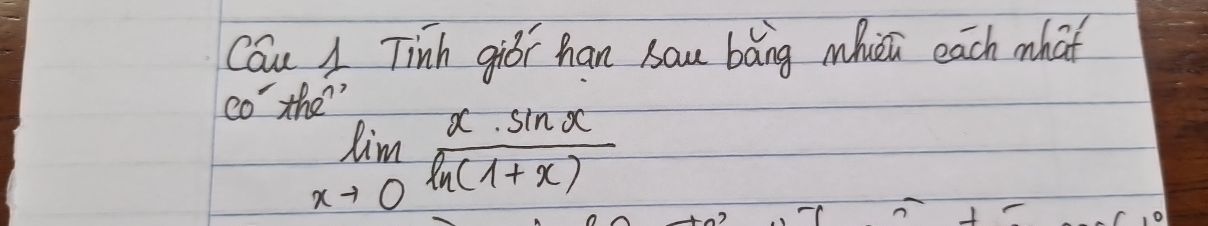 Câu 1 Tính giới hạn sau bằng nhiều cách nhất
có thể
lim x . sin x / ln(1 + x)
x → 0